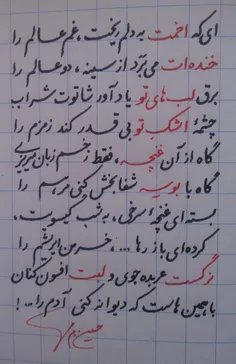 ای که اخمت به دلم ریخت، غم عالم را
خنده‌ات می‌بَرَد از سینه، دو عالم را
برق لب‌های تو یادآور شاتوت شراب
چشمهٔ اشک تو بی قدر کند زمزم را
گاه از آن غنچه، فقط زخم زبان می‌ریزی
گاه با بوسه شفابخش کنی مرهم را
بسته‌ای غنچهٔ سرخی، به شب گیسویت،
کرده‌ای باز رها...، خرمن ابریشم را
نرگست عربده جوی و لبت افسون کنان
با همین هاست که دیوانه کنی آدم را...!